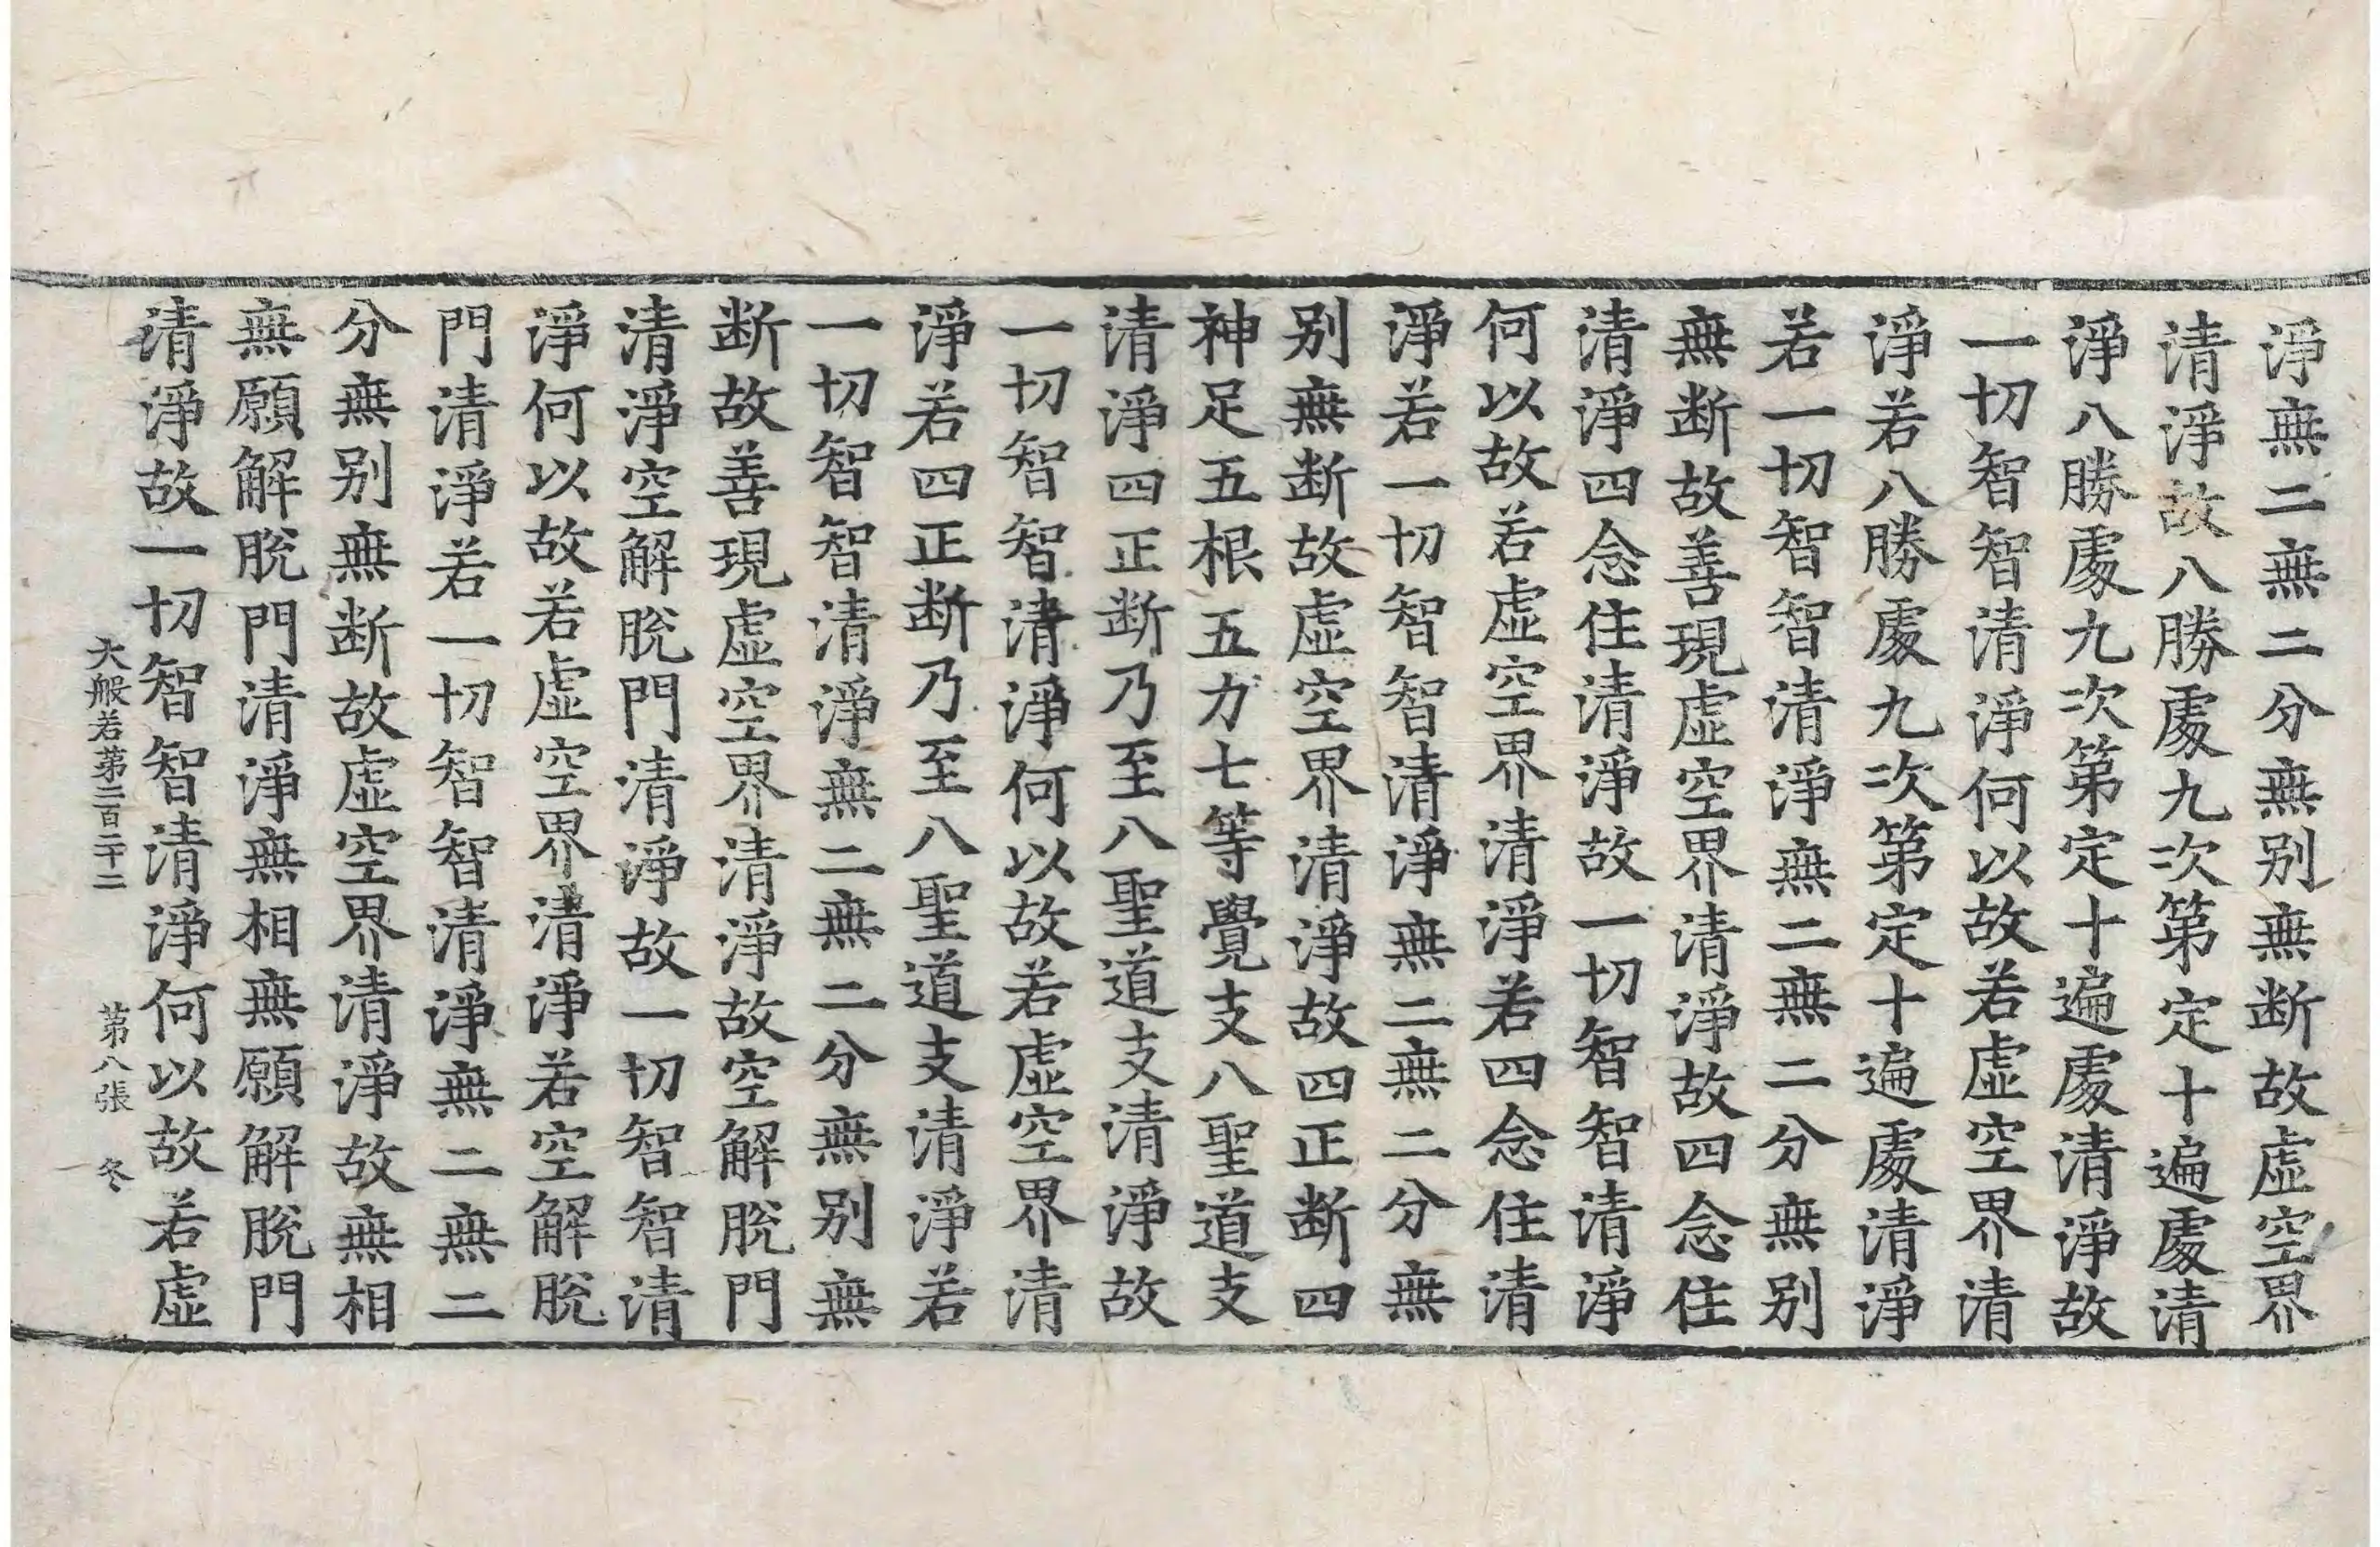 淨無二無二分無别無断故虛空界
清淨故八勝處九次第定十遍處清
淨八勝處九次第定十遍處清淨故
一切智智清淨何以故若虛空界清
淨若八勝處九次第定十遍處清淨
若一切智智清淨無二無二分無别
無断故善現虛空界清淨故四念住
清淨四念住清淨故一切智智清淨
何以故若虛空界清淨若四念住清
淨若一切智智清淨無二無二分無
别無断故虛空界清淨故四正断四
神足五根五力七等覺支八聖道支
清淨四正断乃至八聖道支清淨故
一切智智清淨何以故若虛空界清
淨若四正断乃至八聖道支清淨若
一切智智清淨無二無二分無别無
断故善現虛空界清淨故空解脫門
清淨空解脫門清淨故一切智智清
淨何以故若虛空界清淨若空解脫
門清淨若一切智智清淨無二無二
分無别無断故虛空界清淨故無相
無願解脫門清淨無相無願解脫門
清淨故一切智智清淨何以故若虛
大般若第二百二十二 第八張 冬